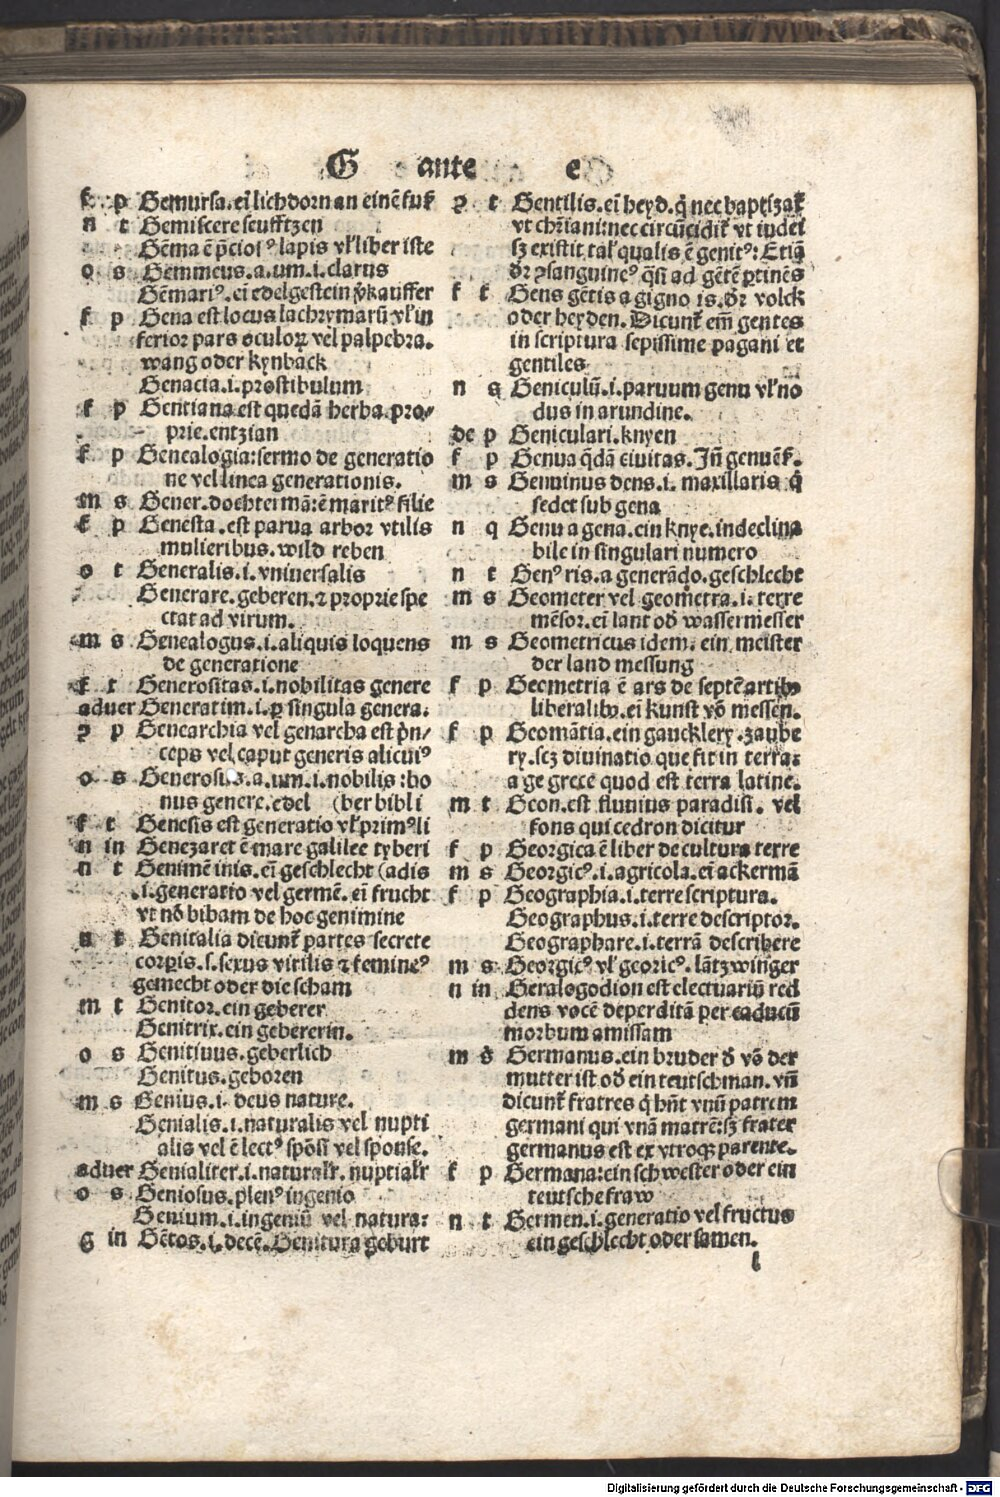 G ante e
f p Gemursa. eī lichdorn an einē fuß
n t Gemiscere seufftzen
Gēma ē p̄cioꝰ lapis vl' liber iste
o s Gemmeus.a.um.i.clarus
Gēmariꝰ. eī edelgestein v̓kauffer
f p Gena est locus lachrymarū vl' in
ferior pars oculoꝝ vel palpebra.
wang oder kynback
Genacia.i.prostibulum
f p Gentiana est quedā herba. pro⸗
prie. entzian
f p Genealogia: sermo de generatio
ne vel linea generationis.
m s Gener. dochtermā: ē maritꝰ filie
f p Genesta. est parua arbor vtilis
mulieribus. wild reben
o t Generalis.i.vniuersalis
Generare. geberen. ⁊ proprie spe
ctat ad virum.
m s Genealogus.i.aliquis loquens
de generatione
f t Generositas.i.nobilitas genere
aduer Generatim.i.ꝑ singula genera.
p Genearchia vel genarcha est p̄n⸗
ceps vel caput generis alicuiꝰ
o s Generosus.a.um.i.nobilis: bo
nus genere. edel (ber bibli
f t Genesis est generatio vl' primꝰ li
n in Genezaret ē mare galilee tyberi
n t Genimē inis. eī geschlecht (adis
.i.generatio vel germē. eī frucht
vt nō bibam de hoc genimine
n t Genitalia dicunt̄ partes secrete
corꝑis.s.sexus virilis ⁊ femineꝰ
gemecht oder die scham
m t Genitor. ein geberer
Genitrix. ein gebererin.
o s Genitiuus. geberlich
Genitus. geboren
m s Genius.i.deus nature.
Genialis.i.naturalis vel nupti
alis vel ē lectꝰ spōsi vel sponse.
aduer Genialiter.i.naturalr̄. nuptialr̄
o s Geniosus. plenꝰ ingenio
Genium.i.ingeniū vel natura:
g in Gētos.i.decē. Genitura geburt
t Gentilis. eī heyd. q̄ nec baptizat̄
vt chr̄iani: nec circūcidit̄ vt iudei
sꝫ existit tal' qualis ē genitꝰ: Etiā
dr̄ ꝯsanguineꝰ q̄si ad gētē ꝑtinēs
f t Gens gētis a gigno is. dr̄ volck
oder heyden. Dicunt̄ em̄ gentes
in scriptura sepissime pagani et
gentiles
n s Geniculū.i.paruum genu vl' no
dus in arundine.
de p Geniculari. knyen
f p Genua q̄dā ciuitas. Jn̄ genuēs̄.
m s Genuinus dens.i.maxillaris q̄
sedet sub gena
n q Genu a gena. ein knye. indeclina
bile in singulari numero
n t Genꝰ ris. a generādo. geschlecht
m s Geometer vel geometra.i.terre
mēsor. eī lant od̓ wassermesser
m s Geometricus idem. ein meister
der land messung
f p Geometria ē ars de septē artibꝫ
liberalibꝫ. eī kunst vō messen.
f p Geomātia. ein gaucklery. zaube
ry. scꝫ diuinatio que fit in terra:
a ge grece quod est terra latine.
m t Geon. est fluuius paradisi. vel
fons qui cedron dicitur
f p Georgica ē liber de cultura terre
m s Georgicꝰ.i.agricola. eī ackermā
f p Geographia.i.terre scriptura.
Geographus.i.terre descriptor.
Geographare.i.terrā describere
m s Georgicꝰ vl' georicꝰ. lātzwinger
n in Geralogodion est electuariū red
dens vocē deperditā per caducū
morbum amissam
m s̓ Germanus. ein bruder d̓ vō der
mutter ist od̓ ein teutschman. vn̄
dicunt̄ fratres q̓ hn̄t vnū patrem
germani qui vnā matrē: sꝫ frater
germanus est ex vtroqꝫ parente.
f p Germana: ein schwester oder ein
teutsche fraw
n t Germen.i.generatio vel fructus
ein geschlecht oder samen.
l
Digitalisierung gefördert durch die Deutsche Forschungsgemeinschaft - DFG